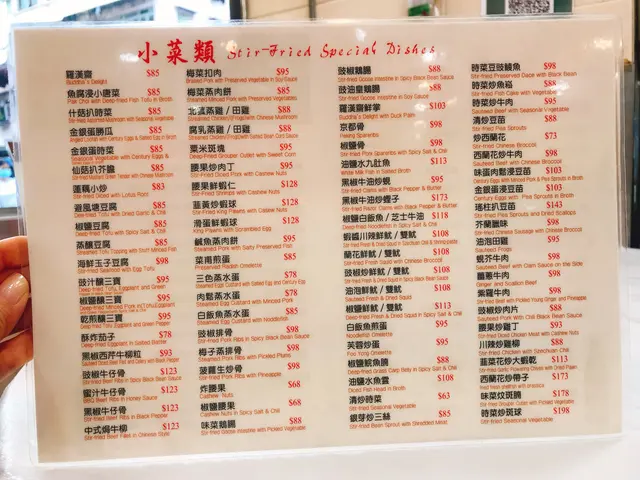 小菜類 Stir-Fried Special Dishes
羅漢齋 $85
Buddha's Delight
魚腐浸小唐菜 $85
Pak Choi with Deep-fried Fish Tofu in Broth
什菇扒時菜 $85
金銀蛋勝瓜 $85
Angled Loofah with Century Eggs & Salted Egg in Broth
金銀蛋時菜 $95
Seasonal Vegetable with Century Eggs &
仙菇扒芥膽 $85
蓮藕小炒 $83
Stir-fried Diced with Lotus Root
避風塘豆腐 $85
Deep-fried Tofu with Dried Garlic & Chili
椒鹽豆腐 $85
Deep-fried Tofu with Spicy Salt & Chili
蒸釀豆腐 $85
Steamed Tofu Topping with Stuff Minced Fish
海鮮玉子豆腐 $98
Stir-fried Seafood with Egg Tofu
豉汁釀三寶 $95
椒鹽釀三寶 $95
乾煎釀三寶 $95
酥炸茄子 $78
Deep-fried Eggplant in Salted Batter
黑椒西芹牛柳粒 $93
豉椒牛仔骨 $123
Stir-fried Beef Ribs in Spicy Black Bean Sauce
蜜汁牛仔骨 $123
BBQ Beef Ribs in Honey Sauce
黑椒牛仔骨 $123
Stir-fried Beef Ribs in Black Pepper
中式焗牛柳 $123
Stir-fried Beef Filet in Chinese Style
梅菜扣肉 $95
Braised Pork with Preserved Vegetable in Soy Sauce
梅菜蒸肉餅 $85
Steamed Minced Pork with Preserved Vegetables
北菇蒸雞 / 田雞 $88
Steamed Chicken/Frog with Chinese Mushroom
腐乳蒸雞 / 田雞 $88
粟米斑塊 $95
Deep-Fried Grouper Cutlet with Sweet Corn
腰果炒肉丁 $95
Stir-fried Diced Pork with Cashew Nuts
腰果鮮蝦仁 $128
Stir-fried Shrimps with Cashew Nuts
韮黃炒蝦球 $128
Stir-fried King Pawns with Cashew Nuts
滑蛋鮮蝦球 $128
King Pawns with Scrambled Egg
鹹魚蒸肉餅 $95
Steamed Pork with Salty Preserved Fish
菜甫煎蛋 $85
Preserved Radish Omelette
三色蒸水蛋 $78
Steamed Egg Custard with Salted Egg and Century Egg
肉鬆蒸水蛋 $78
Steamed Egg Custard with Minced Pork
白飯魚蒸水蛋 $85
Steamed Egg Custard with Noodlefish
豉椒排骨 $98
Stir-fried Pork Rips in Spicy Black Bean Sauce
梅子蒸排骨 $98
Steamed Pork Ribs with Pickled Plums
菠蘿生炒骨 $98
Stir-fried Pork Ribs with Pineapple
炸腰果 $68
Cashew Nuts
椒鹽腰果 $68
Cashew Nuts in Spicy Salt & Chili
味菜鵝腸 $88
Stir-fried Goose Intestine with Pickled Vegetable
豉椒鵝腸 $88
Stir-fried Goose Intestine in Spicy Black Bean Sauce
豉油皇鵝腸 $88
Stir-fried Goose Intestine in Soy Sauce
羅漢齋鮮掌 $103
Buddha's Delight with Duck Palm
京都骨 $98
Peking Spareribs
椒鹽骨 $98
Stir-fried Pork Spareribs with Spicy Salt & Chili
油鹽水九肚魚 $113
White Milk Fish in Salted Broth
黑椒牛油炒蜆 $95
Stir-fried Clams with Black Pepper & Butter
黑椒牛油炒蟶子 $173
Stir-fried Razor Clams with Black Pepper & Butter
椒鹽白飯魚 / 芝士牛油 $118
Deep-fried Noodlefish in Spicy Salt & Chili
蝦醬川辣鮮魷 / 雙魷 $108
蘭花鮮魷 / 雙魷 $108
Stir-fried Fresh Squid with Chinese Broccoli
豉椒炒鮮魷 / 雙魷 $108
Stir-fried Fresh & Dried Squid in Spicy Black Bean Sauce
油泡鮮魷 / 雙魷 $108
Sauteed Fresh & Dried Squid
椒鹽鮮魷 / 雙魷 $113
Deep-fried Fresh & Dried Squid in Spicy Salt & Chili
白飯魚煎蛋 $95
Noodlefish Omelette
芙蓉炒蛋 $95
Foo Yong Omelette
椒鹽鯇魚腩 $88
Deep-fried Grass Carp Belly in Spicy Salt & Chili
油鹽水魚雲 $108
Diced Fish Head in Broth
清炒時菜 $63
Stir-fried Seasonal Vegetable
銀芽炒三絲 $85
Stir-fried Bean Sprout with Shredded Meat
時菜豆豉鯪魚 $98
Stir-fried Preserved Dace with Black Bean
時菜炒魚崧 $88
Stir-fried Fish Cake with Vegetable
時菜炒牛肉 $95
Sauteed Beef with Seasonal Vegetable
清炒豆苗 $88
Stir-fried Pea Sprouts
炒西蘭花 $73
Stir-fried Chinese Broccoli
西蘭花炒牛肉 $98
Sauteed Beef with Chinese Broccoli
味蛋肉鬆浸豆苗 $103
金銀蛋浸豆苗 $103
Century Eggs with Pea Sprouts in Broth
瑤柱扒豆苗 $143
Stir-fried Pea Sprouts and Dried Scallops
芥蘭臘味 $98
Stir-fried Chinese Sausage with Chinese Broccoli
油泡田雞 $95
Sauteed Frogs
蜆芥牛肉 $98
Sauteed Beef with Clam Sauce on the Side
薑蔥牛肉 $98
Ginger and Scallion Beef
紫蘿牛肉 $98
Beef with Pickled Young Ginger and Pineapple
豉椒炒肉片 $88
Sauteed Pork with Chili Black Bean Sauce
腰果炒雞丁 $93
Stir-fried Diced Chicken Meat with Cashew Nuts
川辣炒雞柳 $88
Stir-fried Chicken with Szechuan Chili
韮菜花炒大蝦乾 $113
西蘭花炒帶子 $173
味菜炆斑腩 $178
時菜炒斑球 $198
Stir-fried Grouper with Seasonal Vegetables